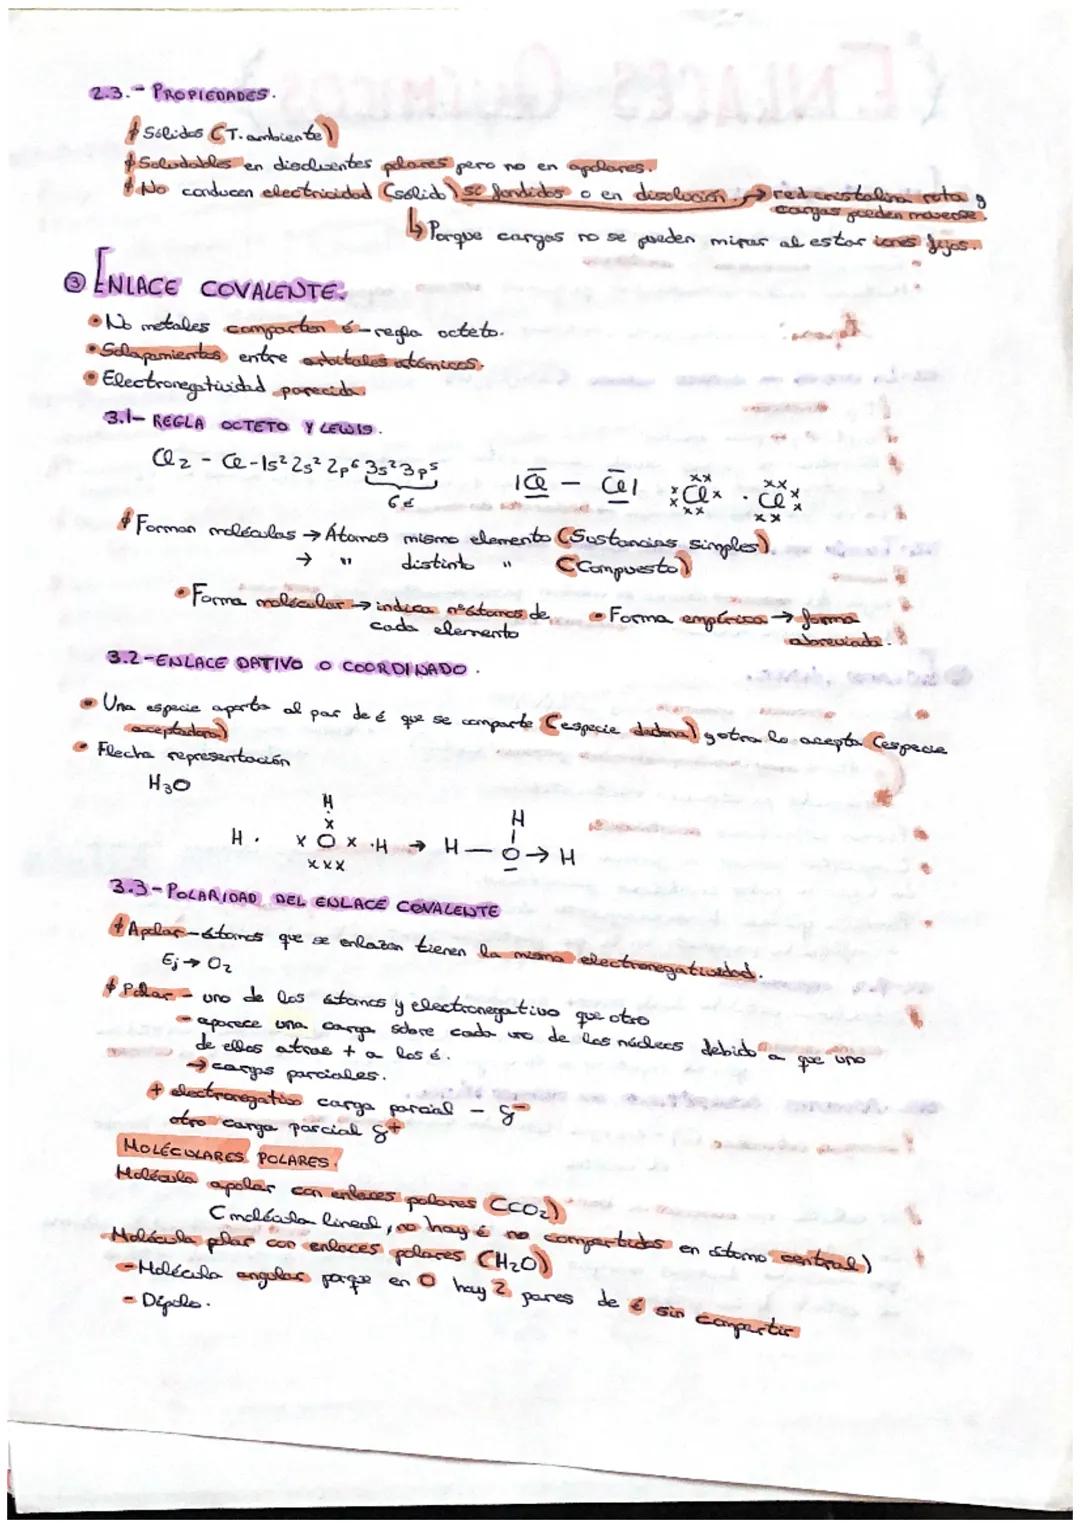 2.3.- PROPIEDADES.
Sólidos (T. ambiente)
Soludables en disolventes polares pero no en apolares.
No conducen electricidad (sólido) si fundidos o en disolución. → red cristalina rota y
cargas pueden moverse.
↳ Porque cargas no se pueden mirar al estar iones fijos.
③ ENLACE COVALENTE.
• No metales comparten é - regla octeto.
• Solapamientos entre orbitales atómicos.
• Electronegatividad parecida
3.1- REGLA OCTETO Y LEWIS.
Cl2 - Cl - 1s² 2s² 2p⁶ 3s² 3p⁵
6 é
|Cl - Cl| Cl · Cl
Forman moléculas → Átomos mismo elemento (Sustancias simples)
→ " distinto " (Compuesto)
• Forma molécular → indica nº átomos de
cada elemento
• Forma empírica → forma
abreviada.
3.2- ENLACE DATIVO O COORDINADO.
• Una especie aporta al par de é que se comparte (especie dadora) y otra lo acepta (especie
aceptadora)
• Flecha representación
H3O
H
x
H · x O x · H → H — O → H
xxx
H
3.3- POLARIDAD DEL ENLACE COVALENTE
Apolar - átomos que se enlazan tienen la misma electronegatividad.
Ej → O2
Polar - uno de los átomos y electronegativo que otro
- aparece una carga sobre cada uno de los núcleos debido a que uno
de ellos atrae + a los é.
→ cargas parciales.
+ electronegativo carga parcial - δ-
otro carga parcial δ+
MOLÉCULARES POLARES.
Molécula apolar con enlaces polares (CO2)
(molécula lineal, no hay é no compartidos en átomo central)
Molécula plar con enlaces polares (H2O)
- Molécula angular porque en O hay 2 pares de é sin compartir
- Dipolo.